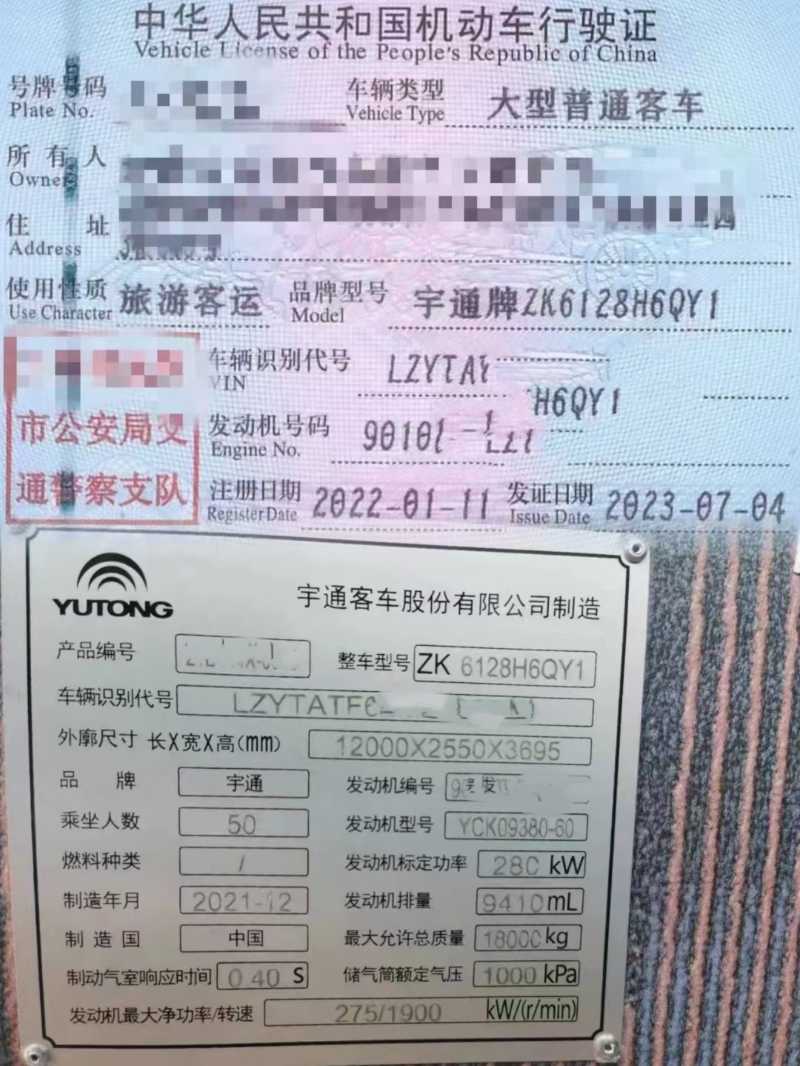 中华人民共和国机动车行驶证
Vehicle License of the People's Republic of China
号牌号码 车辆类型 大型普通客车
Plate No. Vehicle Type
所有人
Owner
住址
Address
使用性质 旅游客运 品牌型号 宇通牌ZK6128H6QY1
Use Character Model
车辆识别代号 LZYTAY
VIN
H6QY1
市公安局交 发动机号码
Engine No.
通警察支队 注册日期 2022-01-11 发证日期 2023-07-04
Register Date Issue Date
YUTONG 宇通客车股份有限公司制造
产品编号 整车型号 ZK 6128H6QY1
车辆识别代号 LZYTATF
外廓尺寸 长X宽X高(mm) 12000X2550X3695
品牌 宇通 发动机编号
乘坐人数 50 发动机型号 YCK09380-60
燃料种类 / 发动机标定功率 280 kW
制造年月 2021-12 发动机排量 9410mL
制造国 中国 最大允许总质量 18000kg
制动气室响应时间 0.40 S 储气筒额定气压 1000 kPa
发动机最大净功率/转速 275/1900 kW/(r/min)